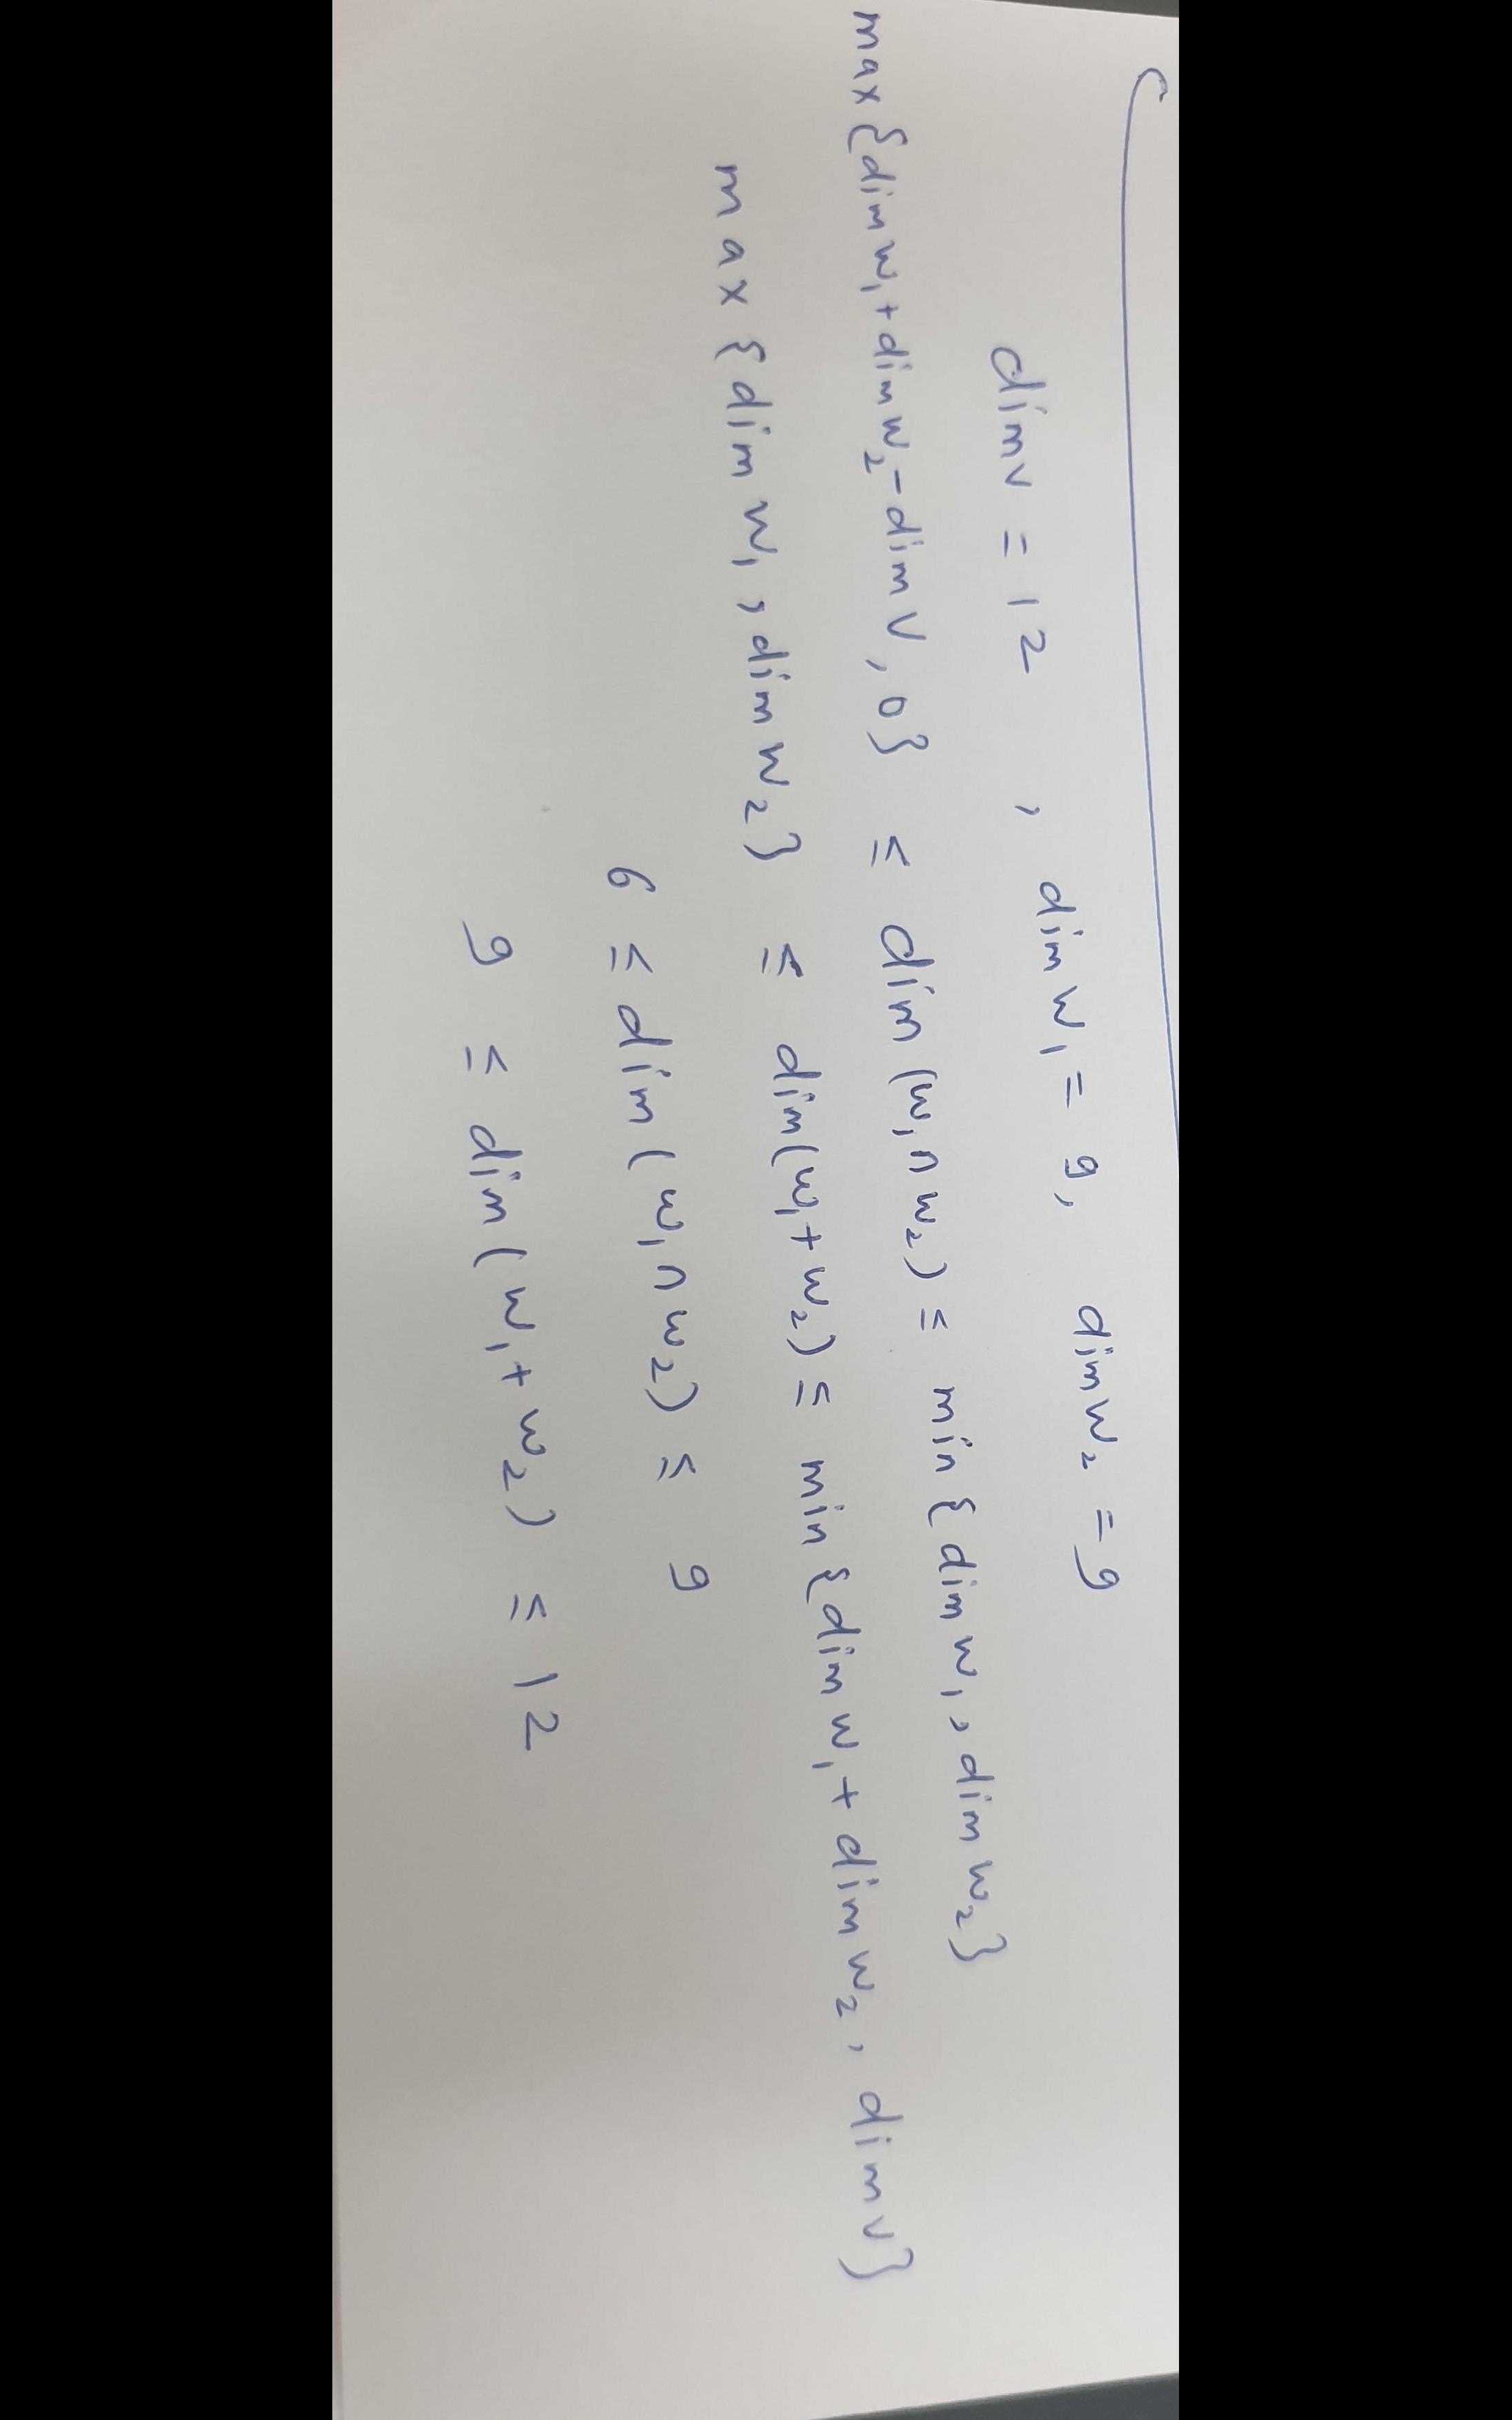 dim V = 12 , dim W₁ = 9, dim W₂ = 9
max {dim W₁ + dim W₂ - dim V, 0} ≤ dim (W₁ ∩ W₂) ≤ min {dim W₁, dim W₂}
max {dim W₁, dim W₂} ≤ dim(W₁ + W₂) ≤ min {dim W₁ + dim W₂, dim V}
6 ≤ dim (W₁ ∩ W₂) ≤ 9
9 ≤ dim (W₁ + W₂) ≤ 12